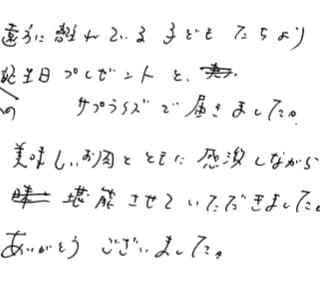 遠方に離れている子どもたちより
誕生日プレゼントと、
の サプライズで届きました。
美味しいお肉とともに感激しながら
堪能させていただきました。
ありがとうございました。